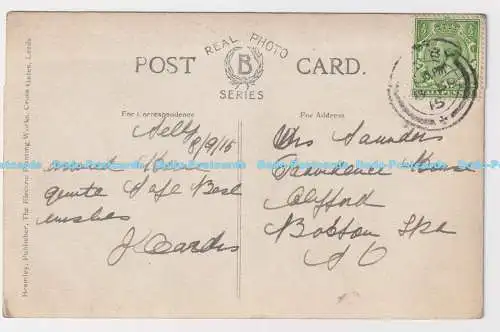 POST CARD.
REAL PHOTO
B
SERIES
For Correspondence
For Address
Bramley, Publisher, The Electric Printing Works, Cross Gates, Leeds
Selby
8/9/15
arrived Home
quite Safe Best
wishes
J
Mrs Saunders
Providence House
Clifford
Boston Spa
S O
15